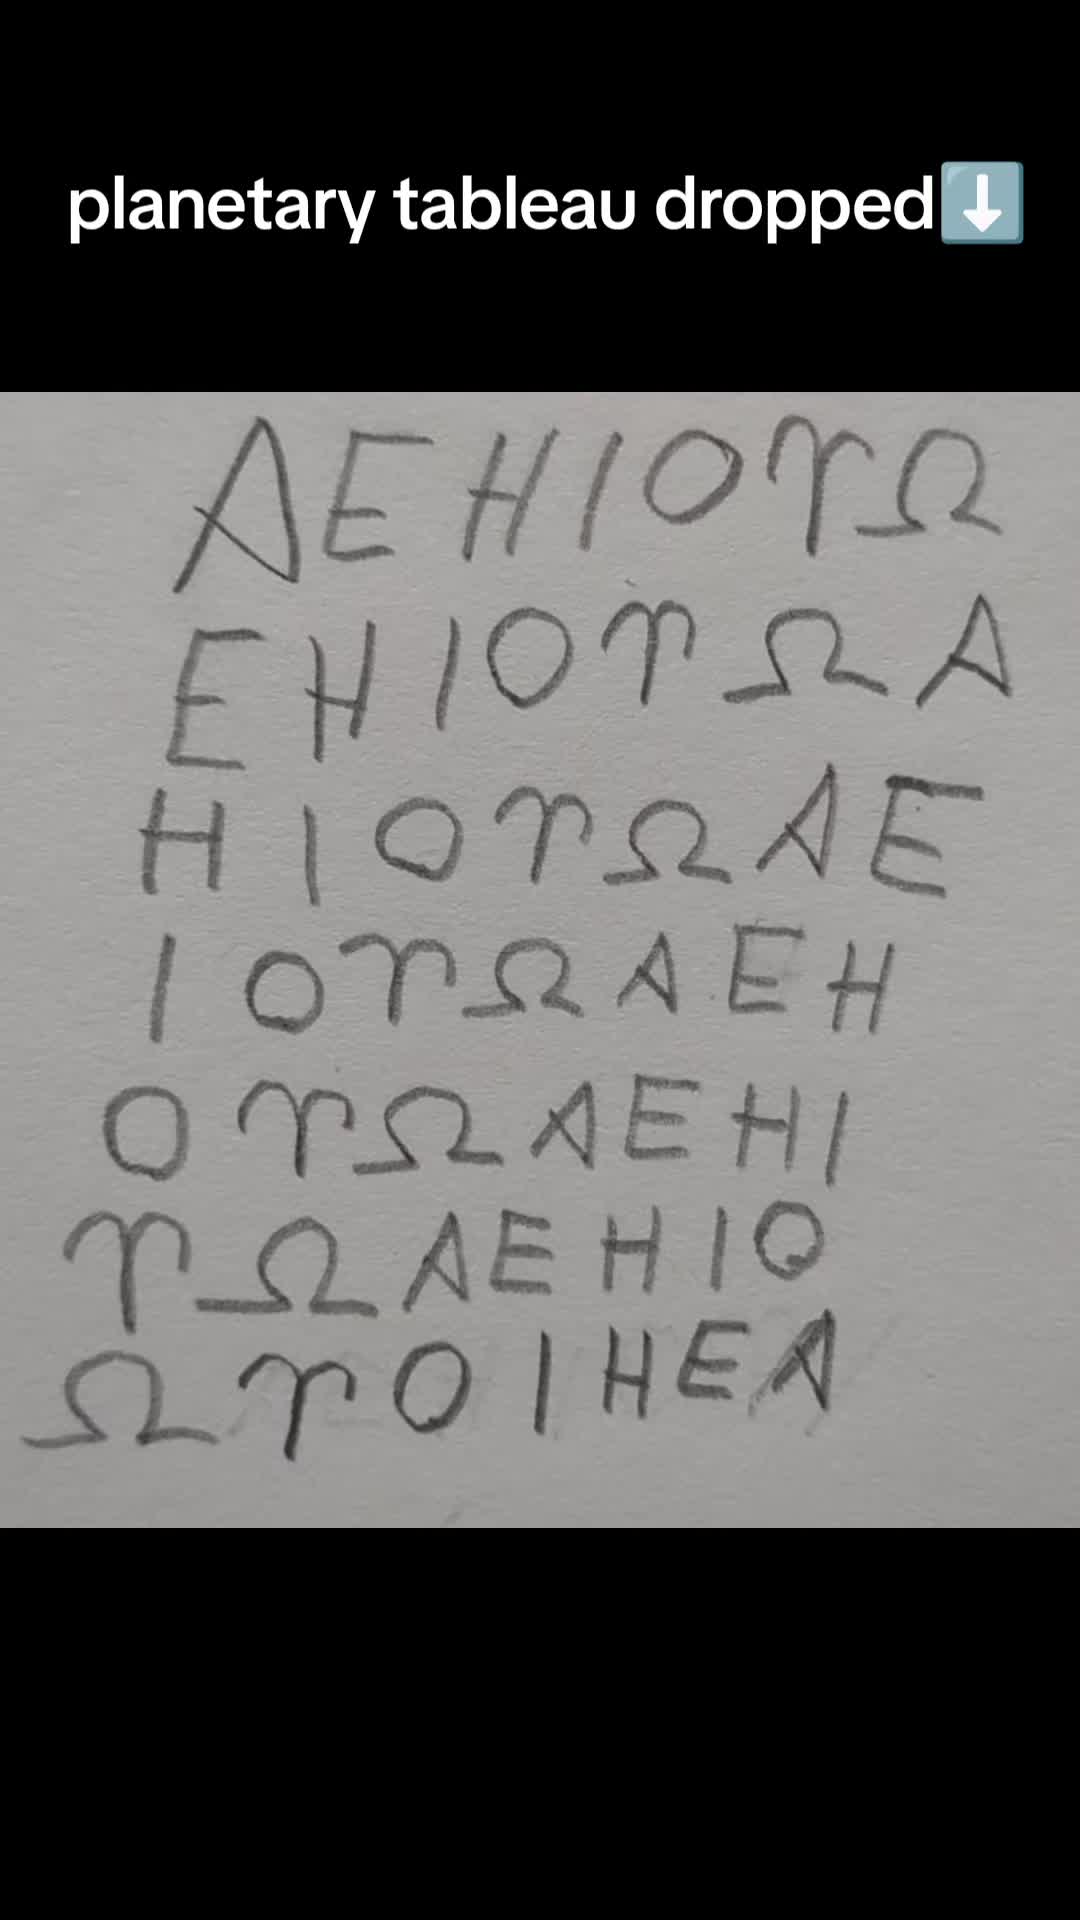 planetary tableau dropped⬇️
ΑΕΗΙΟΥΩ
ΕΗΙΟΥΩΑ
ΗΙΟΥΩΑΕ
ΙΟΥΩΑΕΗ
ΟΥΩΑΕΗΙ
ΥΩΑΕΗΙΟ
ΩΥΟΙΗΕΑ